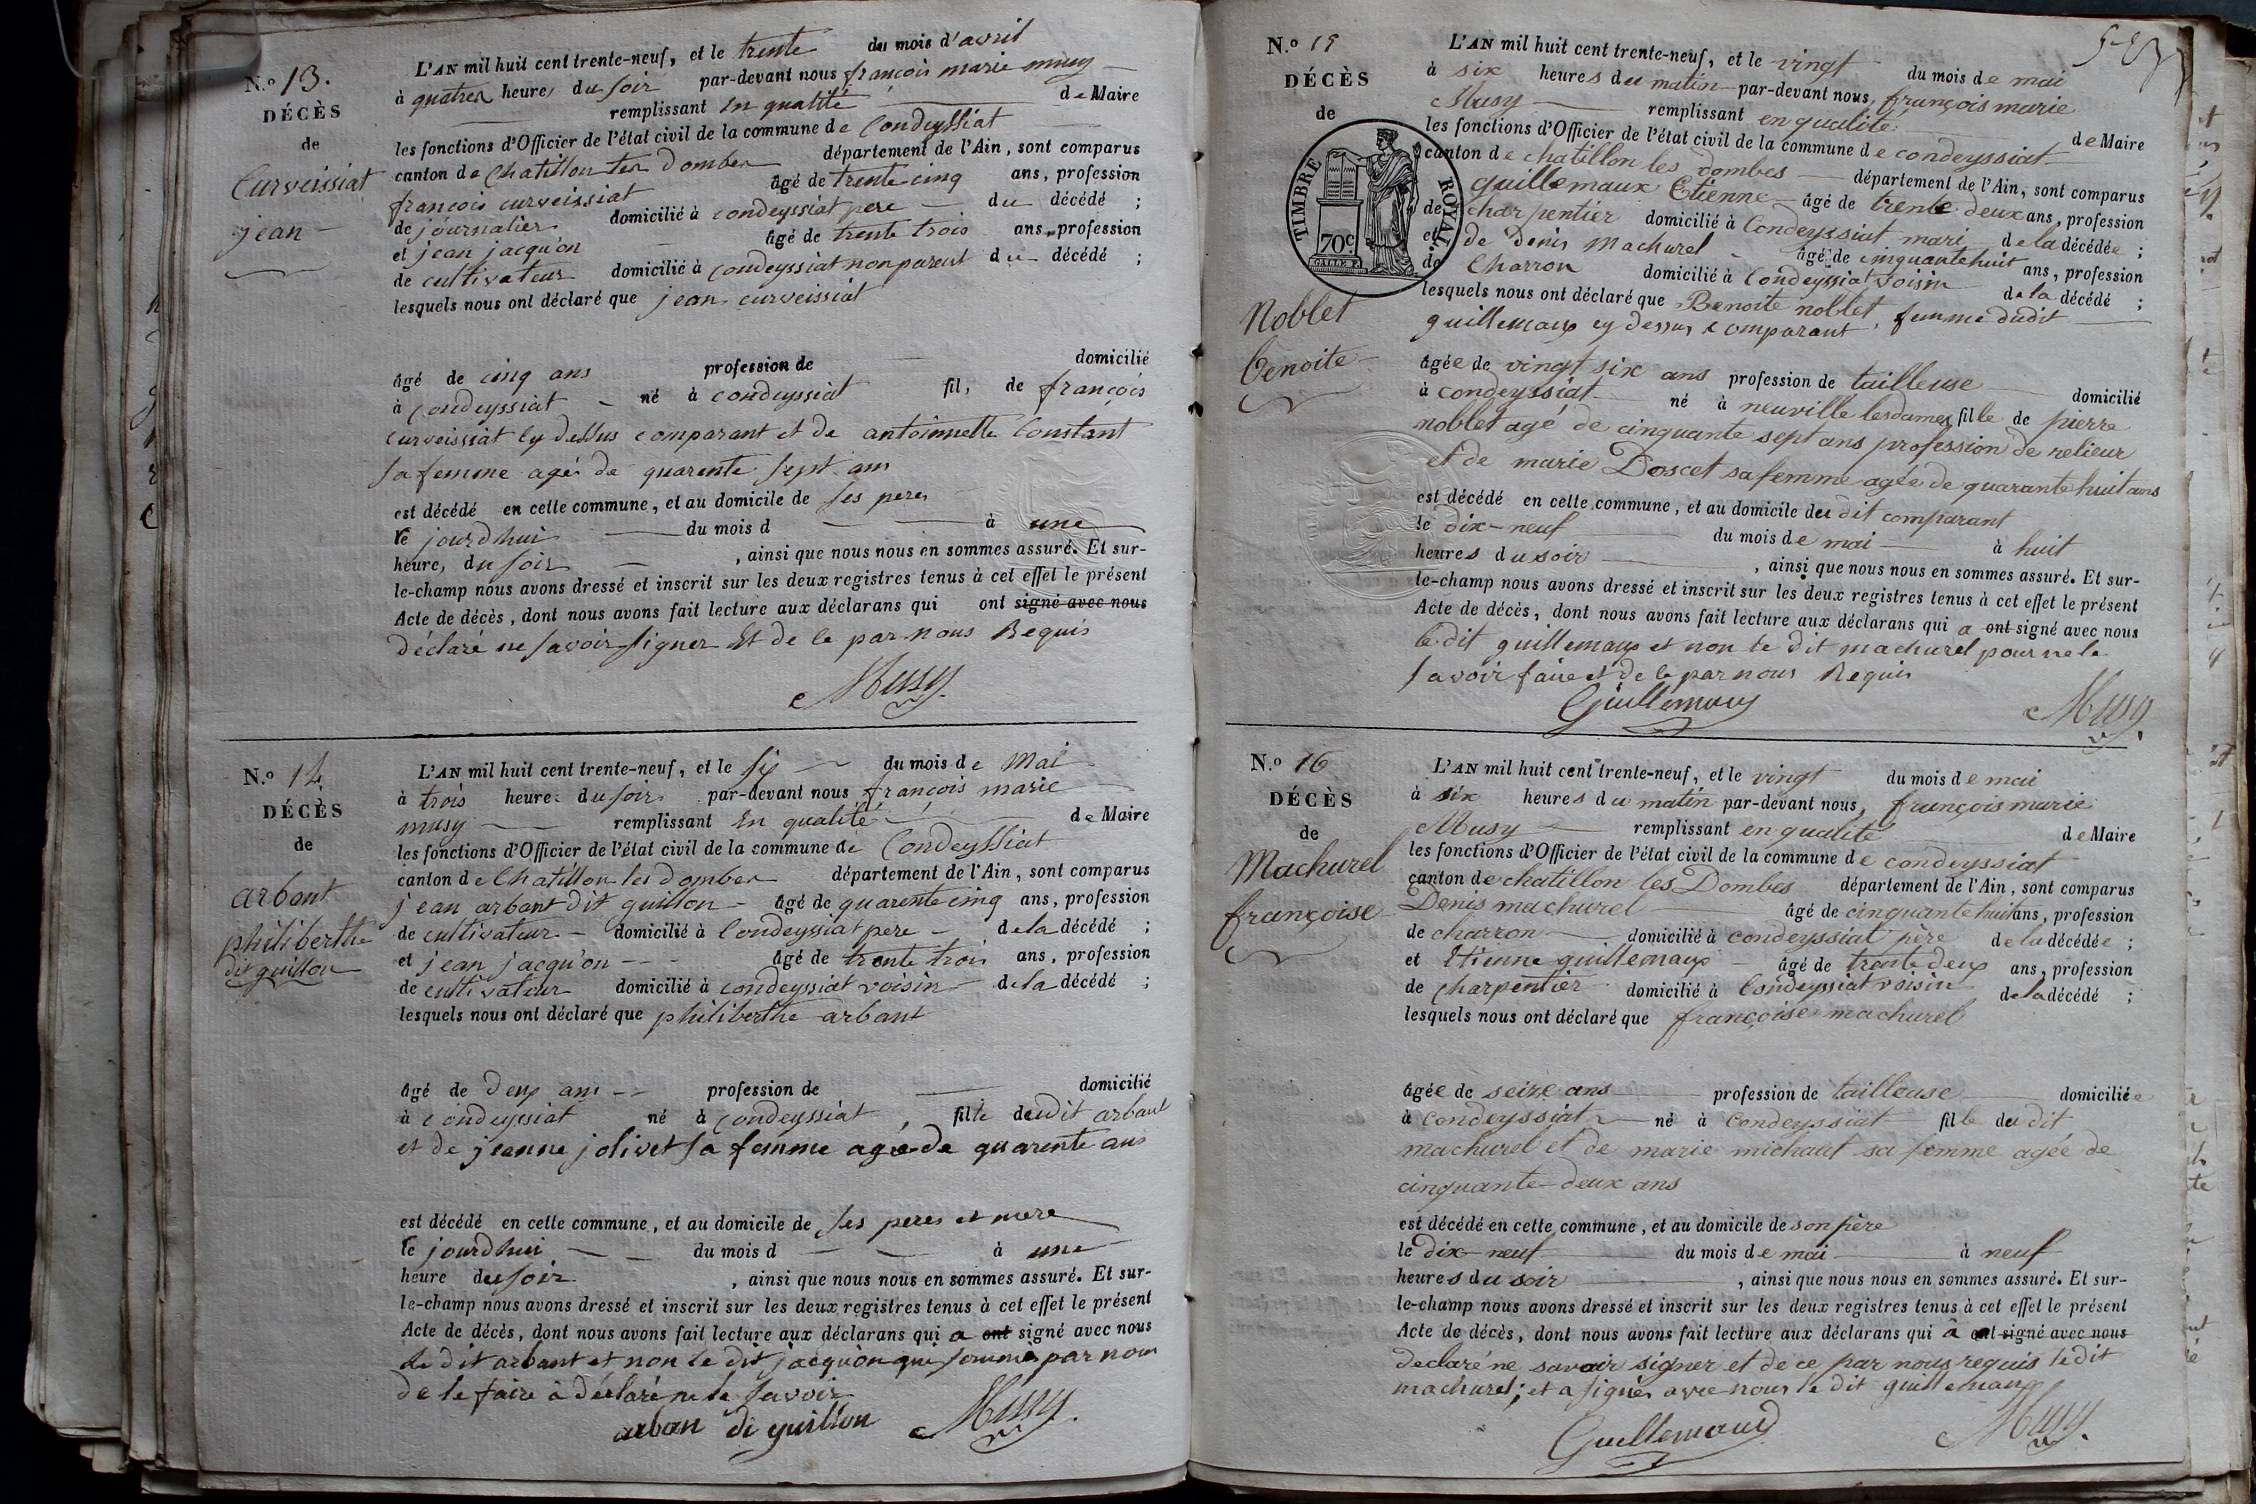 N.º 13.
DÉCÈS
de
Curveissiat
jean
L'AN mil huit cent trente-neuf, et le trente du mois d'avril
à quatre heures du soir par-devant nous françois marie musy
remplissant en qualité de Maire
les fonctions d'Officier de l'état civil de la commune de Condeyssiat
canton de Chatillon les Dombes département de l'Ain, sont comparus
françois curveissiat âgé de trente cinq ans, profession
de journalier domicilié à condeyssiat pere du décédé ;
et jean jacquon âgé de trente trois ans, profession
de cultivateur domicilié à condeyssiat non parent du décédé ;
lesquels nous ont déclaré que jean curveissiat
âgé de cinq ans profession de domicilié
à condeyssiat né à condeyssiat fils de françois
curveissiat cy dessus comparant et de antoinnette Constant
sa femme agé de quarente sept ans
est décédé en cette commune, et au domicile de ses peres
le jourdhui du mois d à une
heure, du soir , ainsi que nous nous en sommes assuré. Et sur-
le-champ nous avons dressé et inscrit sur les deux registres tenus à cet effet le présent
Acte de décès, dont nous avons fait lecture aux déclarans qui ont signé avec nous
déclaré ne savoir signer Et de ce par nous Requis
Musy
N.º 14
DÉCÈS
de
arbant
philiberthe
dit guillon
L'AN mil huit cent trente-neuf, et le six du mois de Mai
à trois heures du soir par-devant nous françois marie
musy remplissant En qualité de Maire
les fonctions d'Officier de l'état civil de la commune de Condeyssiat
canton de Chatillon les Dombes département de l'Ain, sont comparus
jean arbant dit guillon âgé de quarente cinq ans, profession
de cultivateur domicilié à Condeyssiat pere de la décédé ;
et jean jacqu'on âgé de trente trois ans, profession
de cultivateur domicilié à condeyssiat voisin de la décédé ;
lesquels nous ont déclaré que philiberthe arbant
âgé de deux ans profession de domicilié
à condeyssiat né à condeyssiat fille dudit arbant
et de jeanne jolivet sa femme agée de quarente ans
est décédé en cette commune, et au domicile de ses peres et mere
le jourdhui du mois d à une
heure du soir , ainsi que nous nous en sommes assuré. Et sur-
le-champ nous avons dressé et inscrit sur les deux registres tenus à cet effet le présent
Acte de décès, dont nous avons fait lecture aux déclarans qui a ont signé avec nous
le dit arbant et non le dit jacquon qui sommé par nous
de le faire à déclaré ne le savoir
arban di guillon Musy
N.º 15
DÉCÈS
de
TIMBRE ROYAL
70c
Noblet
Benoite
L'AN mil huit cent trente-neuf, et le vingt du mois de mai
à six heures du matin par-devant nous, françois marie
Musy remplissant en qualité de Maire
les fonctions d'Officier de l'état civil de la commune de condeyssiat
canton de chatillon les dombes département de l'Ain, sont comparus
guillemaux Etienne âgé de trente deux ans, profession
de charpentier domicilié à Condeyssiat mari de la décédée ;
et de Denis Machurel âgé de cinquante huit ans, profession
de Charron domicilié à Condeyssiat voisin de la décédé ;
lesquels nous ont déclaré que Benoite noblet, femme dudit
guillemaux cy dessus comparant
âgée de vingt six ans profession de tailleuse domicilié
à condeyssiat né à neuville les dames fille de pierre
noblet agé de cinquante sept ans profession de relieur
et de marie Doscet sa femme agée de quarante huit ans
est décédé en cette commune, et au domicile du dit comparant
le dix-neuf du mois de mai à huit
heures du soir , ainsi que nous nous en sommes assuré. Et sur-
le-champ nous avons dressé et inscrit sur les deux registres tenus à cet effet le présent
Acte de décès, dont nous avons fait lecture aux déclarans qui a ont signé avec nous
le dit guillemaux et non le dit machurel pour ne le
savoir faire et de ce par nous Requis
Guillemaux Musy
N.º 16
DÉCÈS
de
Machurel
françoise
L'AN mil huit cent trente-neuf, et le vingt du mois de mai
à six heures du matin par-devant nous, françois marie
Musy remplissant en qualité de Maire
les fonctions d'Officier de l'état civil de la commune de condeyssiat
canton de chatillon les Dombes département de l'Ain, sont comparus
Denis machurel âgé de cinquante huit ans, profession
de charron domicilié à condeyssiat père de la décédée ;
et Etienne guillemaux âgé de trente deux ans, profession
de charpentier domicilié à Condeyssiat voisin de la décédé ;
lesquels nous ont déclaré que françoise machurel
âgée de seize ans profession de tailleuse domiciliée
à condeyssiat né à condeyssiat fille du dit
machurel et de marie michaut sa femme agée de
cinquante-deux ans
est décédé en cette commune, et au domicile de son père
le dix-neuf du mois de mai à neuf
heures du soir , ainsi que nous nous en sommes assuré. Et sur-
le-champ nous avons dressé et inscrit sur les deux registres tenus à cet effet le présent
Acte de décès, dont nous avons fait lecture aux déclarans qui à ont signé avec nous
declaré ne savoir signer et de ce par nous requis le dit
machurel; et a signés avec nous le dit guillemaux
Guillemaud Musy